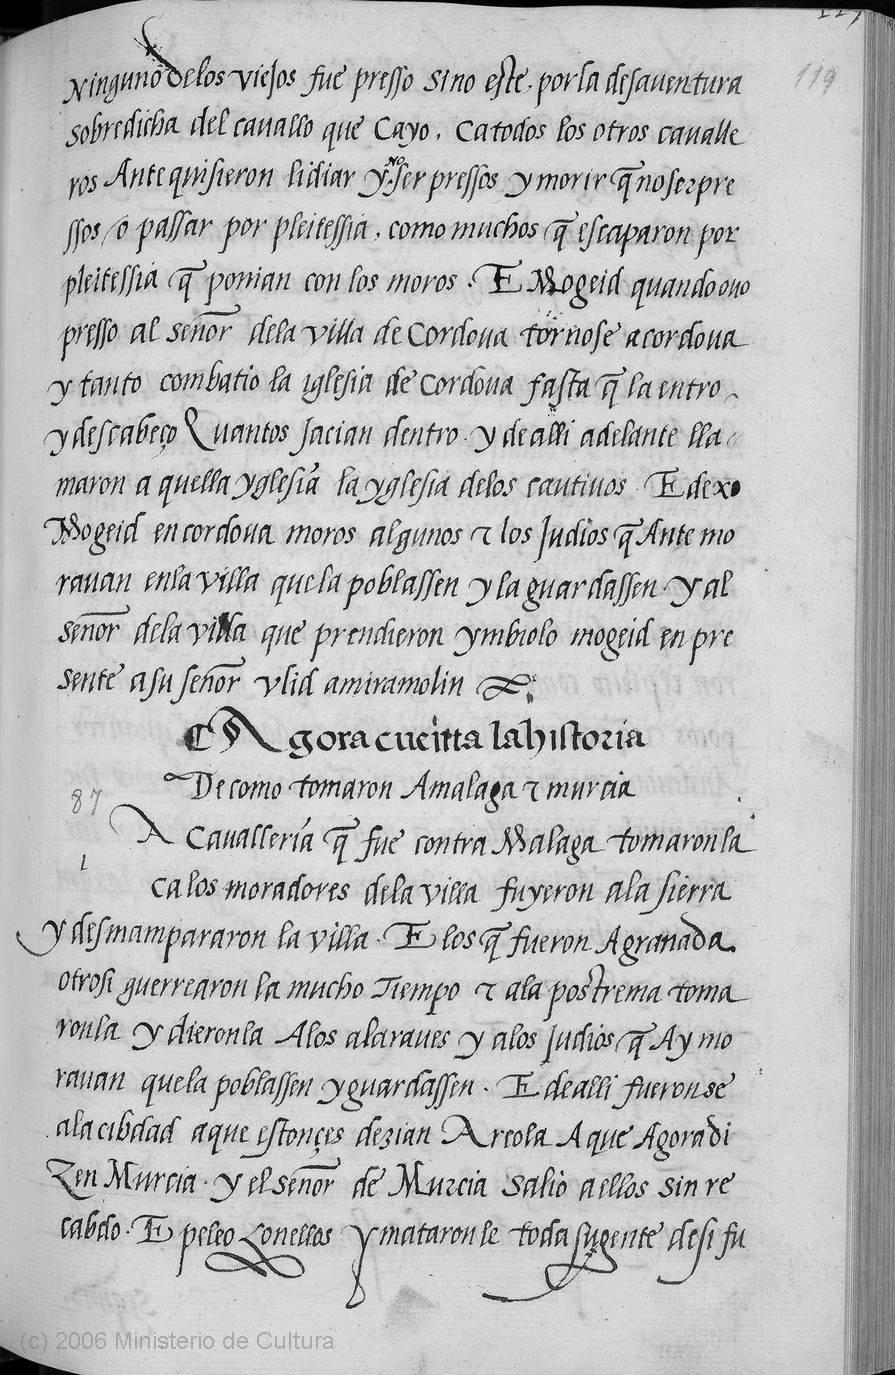 119
Ninguno delos viejos fue presso sino este, por la desauentura
sobredicha del cauallo que Cayo, Catodos los otros caualle
ros Ante quisieron lidiar y no ser pressos y morir q̃ no ser pre
ssos / o passar por pleitessia, como muchos q̃ escaparon por
pleitessia q̃ ponian con los moros. E Mogeid quando ouo
presso al señor dela villa de Cordoua tornose a cordoua
y tanto combatio la iglesia de Cordoua fasta q̃ la entro
y descabeço Quantos Jacian dentro. y de alli adelante lla
maron a quella yglesia la yglesia delos cautiuos. E dexo
Mogeid en cordoua moros algunos τ los Judios q̃ Ante mo
rauan en la villa que la poblassen y la guardassen. Y al
señor dela villa que prendieron ymbiolo mogeid en pre
sente a su señor vlid amiramolin
Agora cueñta la historia
De como tomaron Amalaga τ murcia
87
A Cauallería q̃ fue contra Malaga tomaron la
l
ca los moradores dela villa fuyeron ala sierra
y desmampararon la villa. E los q̃ fueron Agranada
otrosi guerrearon la mucho Tiempo τ ala postrema toma
ronla y dieronla Alos alaraues y alos Judios q̃ Ay mo
rauan que la poblassen y guardassen. E de alli fueronse
ala cibdad aque estonçes dezian Arcola Aque Agora di
Zen Murcia. y el señor de Murcia salio a ellos sin re
cabdo. E peleo Conellos y mataronle toda su gente desi fu
(c) 2006 Ministerio de Cultura